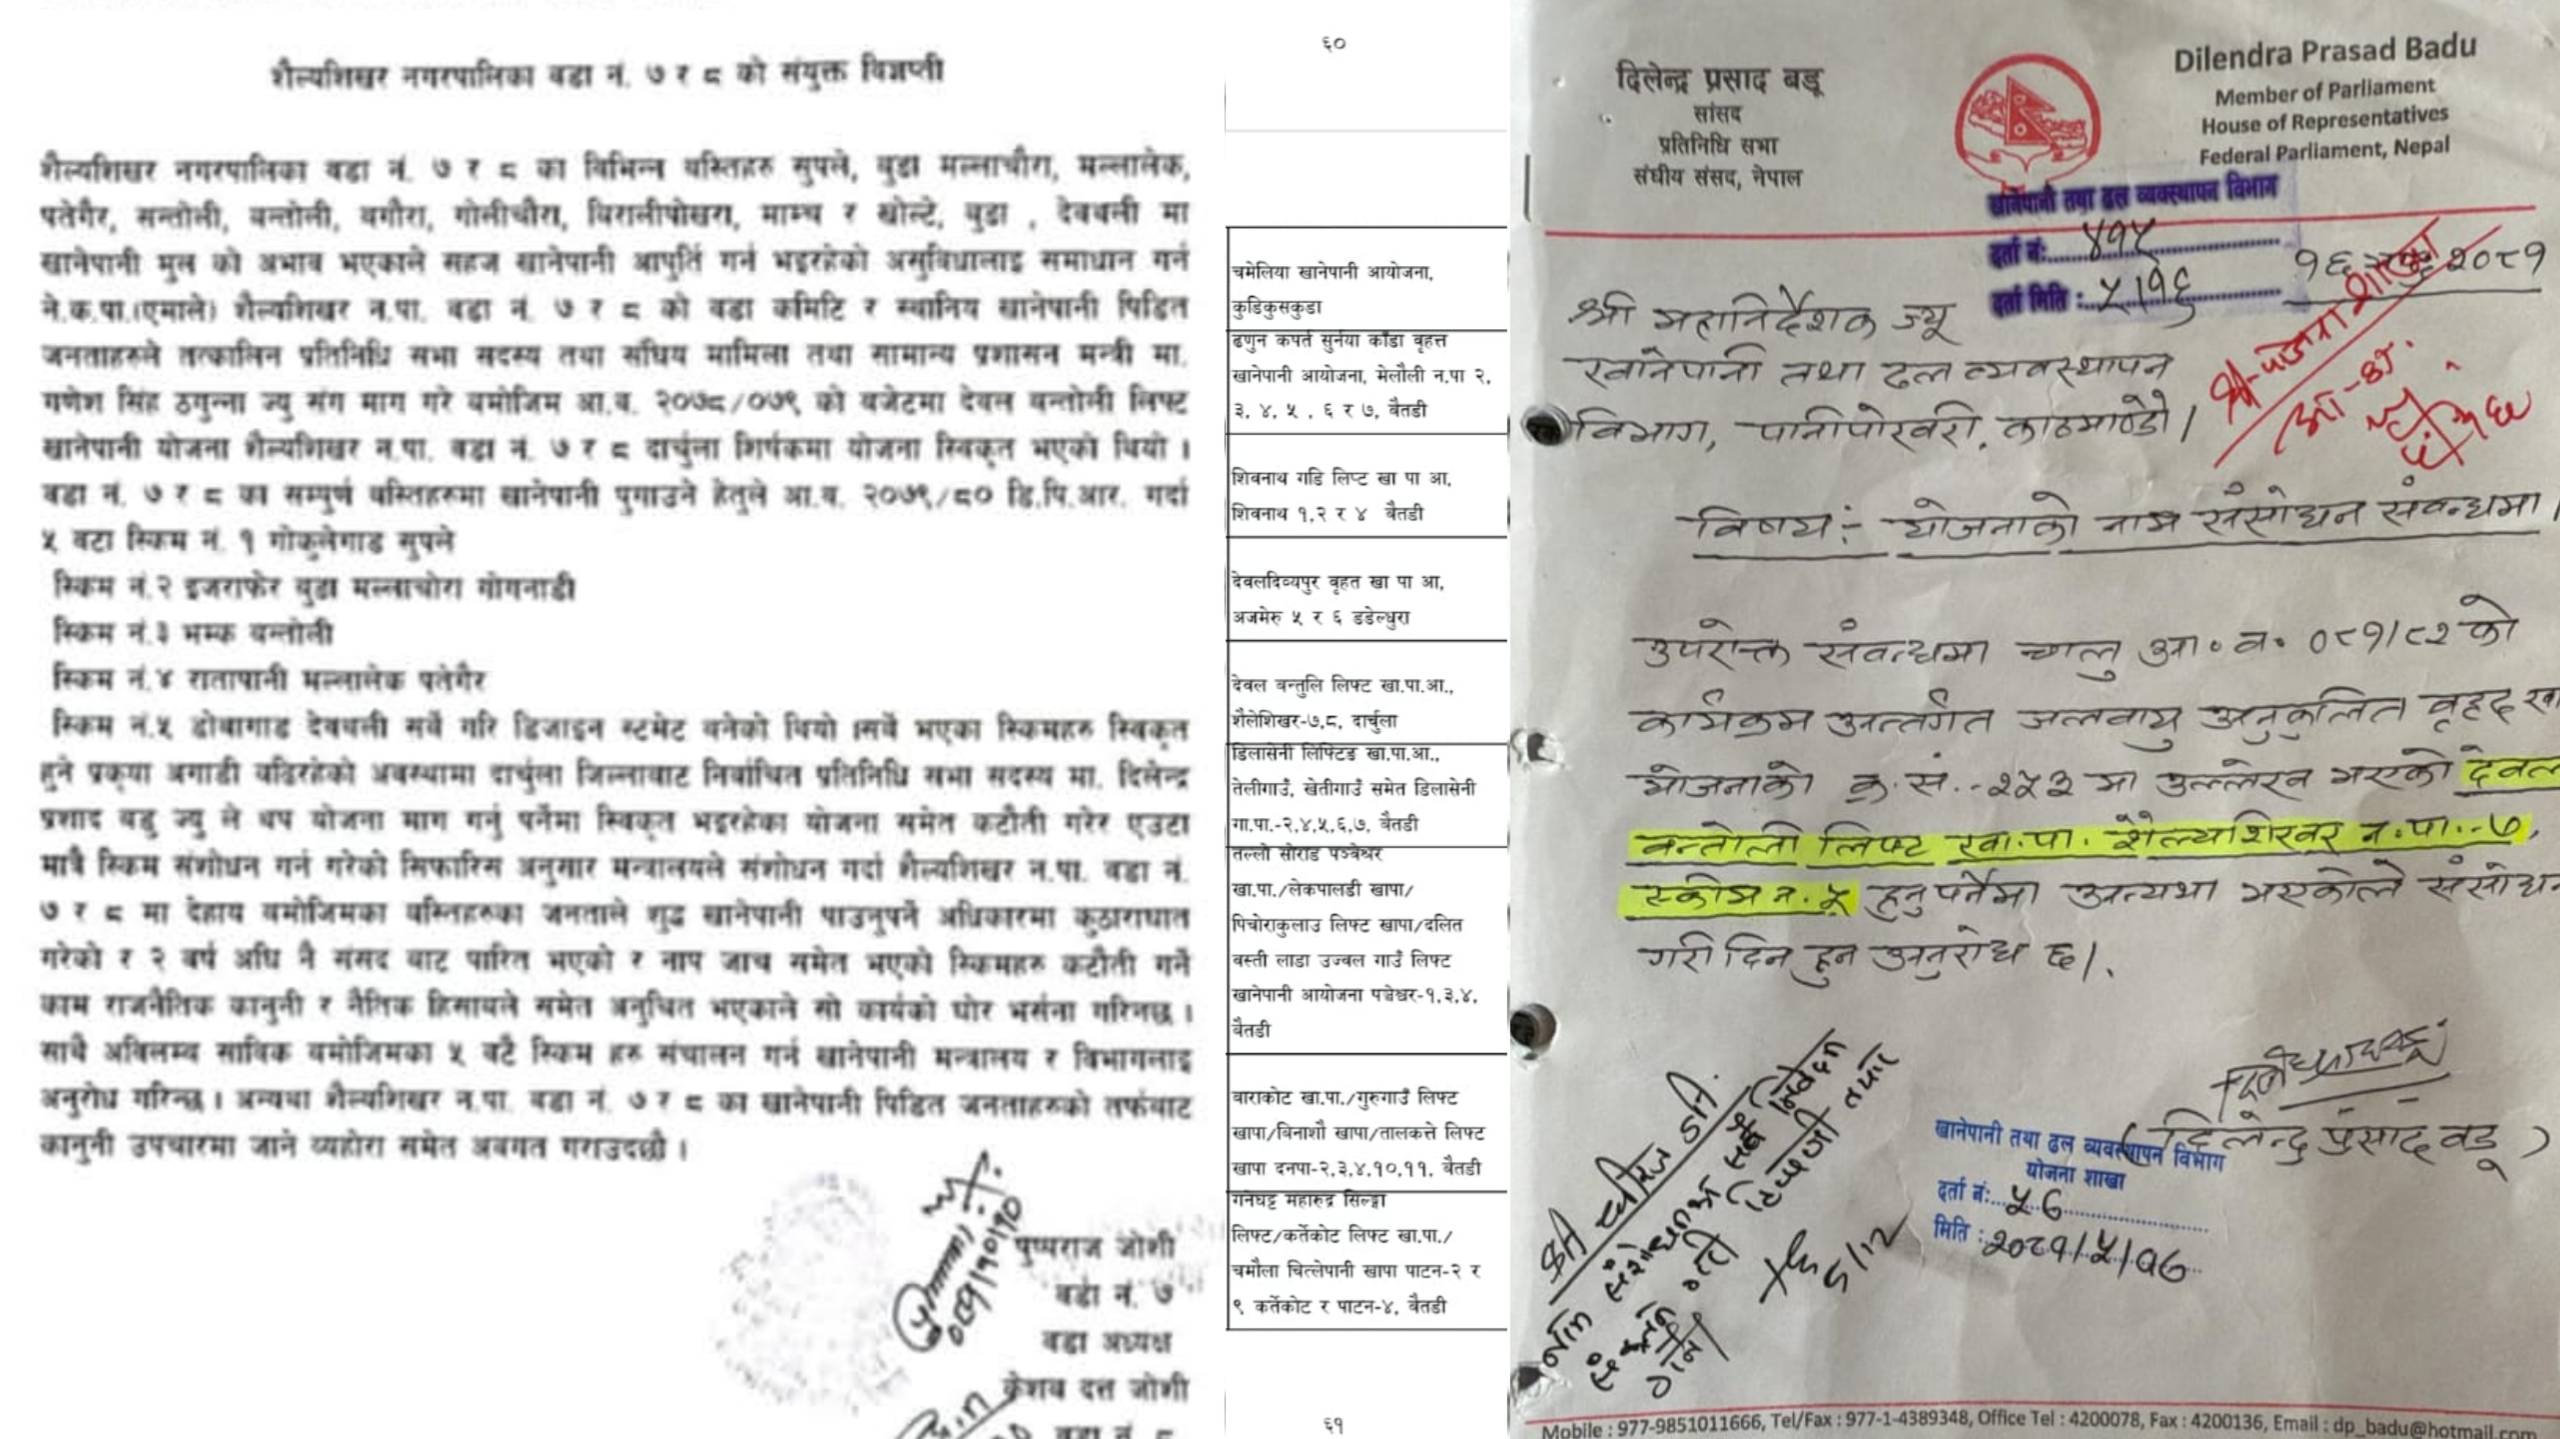 शैल्यशिखर नगरपालिका वडा नं. ७ र ८ को संयुक्त विज्ञप्ती
शैल्यशिखर नगरपालिका वडा नं. ७ र ८ का विभिन्न वस्तिहरु सुपले, बुडा मल्लाचौरा, मल्लालेक,
पतेगैर, सन्तोली, बन्तोली, बगौरा, गोलीचौरा, बिरालीपोखरा, माम्य र खोल्टे, बुडा , देवथली मा
खानेपानी मुल को अभाव भएकाले सहज खानेपानी आपुर्ति गर्न भइरहेको असुविधालाइ समाधान गर्न
ने.क.पा.(एमाले) शैल्यशिखर न.पा. वडा नं. ७ र ८ को वडा कमिटि र स्थानिय खानेपानी पिडित
जनताहरुले तत्कालिन प्रतिनिधि सभा सदस्य तथा संघिय मामिला तथा सामान्य प्रशासन मन्त्री मा.
गणेश सिंह ठगुन्ना ज्यु संग माग गरे बमोजिम आ.ब. २०७८/०७९ को बजेटमा देवल बन्तोली लिफ्ट
खानेपानी योजना शैल्यशिखर न.पा. वडा नं. ७ र ८ दार्चुला शिर्षकमा योजना स्विकृत भएको थियो ।
वडा नं. ७ र ८ का सम्पुर्ण वस्तिहरुमा खानेपानी पुगाउने हेतुले आ.ब. २०७९/८० डि.पि.आर. गर्दा
५ वटा स्किम नं. १ गोकुलेगाड सुपले
स्किम नं.२ इजराफेर बुडा मल्लाचोरा गोगनाडी
स्किम नं.३ भम्क बन्तोली
स्किम नं.४ रातापानी मल्लालेक पतेगैर
स्किम नं.५ डोबागाड देवथली सर्वे गरि डिजाइन स्टमेट बनेको थियो ।सर्वे भएका स्किमहरु स्विकृत
हुने प्रकृया अगाडी बढिरहेको अवस्थामा दार्चुला जिल्लाबाट निर्वाचित प्रतिनिधि सभा सदस्य मा. दिलेन्द्र
प्रशाद बडु ज्यु ले थप योजना माग गर्नु पर्नेमा स्विकृत भइरहेका योजना समेत कटौती गरेर एउटा
मात्रै स्किम संशोधन गर्न गरेको सिफारिस अनुसार मन्त्रालयले संशोधन गर्दा शैल्यशिखर न.पा. वडा नं.
७ र ८ मा देहाय बमोजिमका वस्तिहरुका जनताले शुद्ध खानेपानी पाउनुपर्ने अधिकारमा कुठाराघात
गरेको र २ वर्ष अघि नै संसद बाट पारित भएको र नाप जाच समेत भएको स्किमहरु कटौती गर्ने
काम राजनैतिक कानुनी र नैतिक हिसाबले समेत अनुचित भएकाले सो कार्यको घोर भर्सना गरिनछ ।
साथै अविलम्ब साविक बमोजिमका ५ वटै स्किम हरु संचालन गर्न खानेपानी मन्त्रालय र विभागलाइ
अनुरोध गरिन्छ । अन्यथा शैल्यशिखर न.पा. वडा नं. ७ र ८ का खानेपानी पिडित जनताहरुको तर्फबाट
कानुनी उपचारमा जाने व्यहोरा समेत अवगत गराउदछौ ।
पुष्पराज जोशी
वडा नं. ७
वडा अध्यक्ष
केशव दत्त जोशी
वडा नं. ८
६०
चमेलिया खानेपानी आयोजना,
कुडिकुसकुडा
ढणुन कपर्त सुर्नया काँडा वृहत्त
खानेपानी आयोजना, मेलौली न.पा २,
३, ४, ५ , ६ र ७, बैतडी
शिवनाथ गडि लिफ्ट खा पा आ,
शिवनाथ १,२ र ४ बैतडी
देवलदिव्यपुर वृहत खा पा आ,
अजमेरु ५ र ६ डडेल्धुरा
देवल बन्तुलि लिफ्ट खा.पा.आ.,
शैलेशिखर-७,८, दार्चुला
डिलासेनी लिफ्टिड खा.पा.आ.,
तेलीगाउँ, खेतीगाउँ समेत डिलासेनी
गा.पा.-२,४,५,६,७, बैतडी
तल्लो सोराड पञ्चेश्वर
खा.पा./लेकपालडी खापा/
पिचोराकुलाउ लिफ्ट खापा/दलित
वस्ती लाडा उज्वल गाउँ लिफ्ट
खानेपानी आयोजना पञ्चेश्वर-१,३,४,
बैतडी
वाराकोट खा.पा./गुरुगाउँ लिफ्ट
खापा/बिनाशौ खापा/तालकत्ते लिफ्ट
खापा दनपा-२,३,४,१०,११, बैतडी
गनेघट्ट महारुद्र सिल्ङ्गा
लिफ्ट/कर्तेकोट लिफ्ट खा.पा./
चमौला चित्लेपानी खापा पाटन-२ र
९ कर्तेकोट र पाटन-४, बैतडी
६१
दिलेन्द्र प्रसाद बडू
सांसद
प्रतिनिधि सभा
संघीय संसद, नेपाल
Dilendra Prasad Badu
Member of Parliament
House of Representatives
Federal Parliament, Nepal
खानेपानी तथा ढल व्यवस्थापन विभाग
दर्ता नं: ४१५
दर्ता मिति : ५/१६
१६ २०८१
श्री महानिर्देशक ज्यू
खानेपानी तथा ढल व्यवस्थापन
विभाग, पानीपोखरी, काठमाण्डौ ।
श्री-योजना शाखा
विषय:- योजनाको नाम संसोधन संवन्धमा ।
उपरोक्त संवन्धमा चालु आ॰व॰ ०८१/८२ को
कार्यक्रम अन्तर्गत जलवायु अनुकुलित वृहद खा
योजनाको क्र.सं.-२५३ मा उल्लेख भएको देवल
वन्तोली लिफ्ट खा.पा. शैल्यशिखर न.पा.-७,
स्कीम न. ५ हुनु पर्नेमा अन्यथा भएकोले संसोधन
गरी दिन हुन अनुरोध छ ।
(दिलेन्द्र प्रसाद बडू)
खानेपानी तथा ढल व्यवस्थापन विभाग
योजना शाखा
दर्ता नं: ५७
मिति : २०८१/५/१७
Mobile : 977-9851011666, Tel/Fax : 977-1-4389348, Office Tel : 4200078, Fax : 4200136, Email : dp_badu@hotmail.com